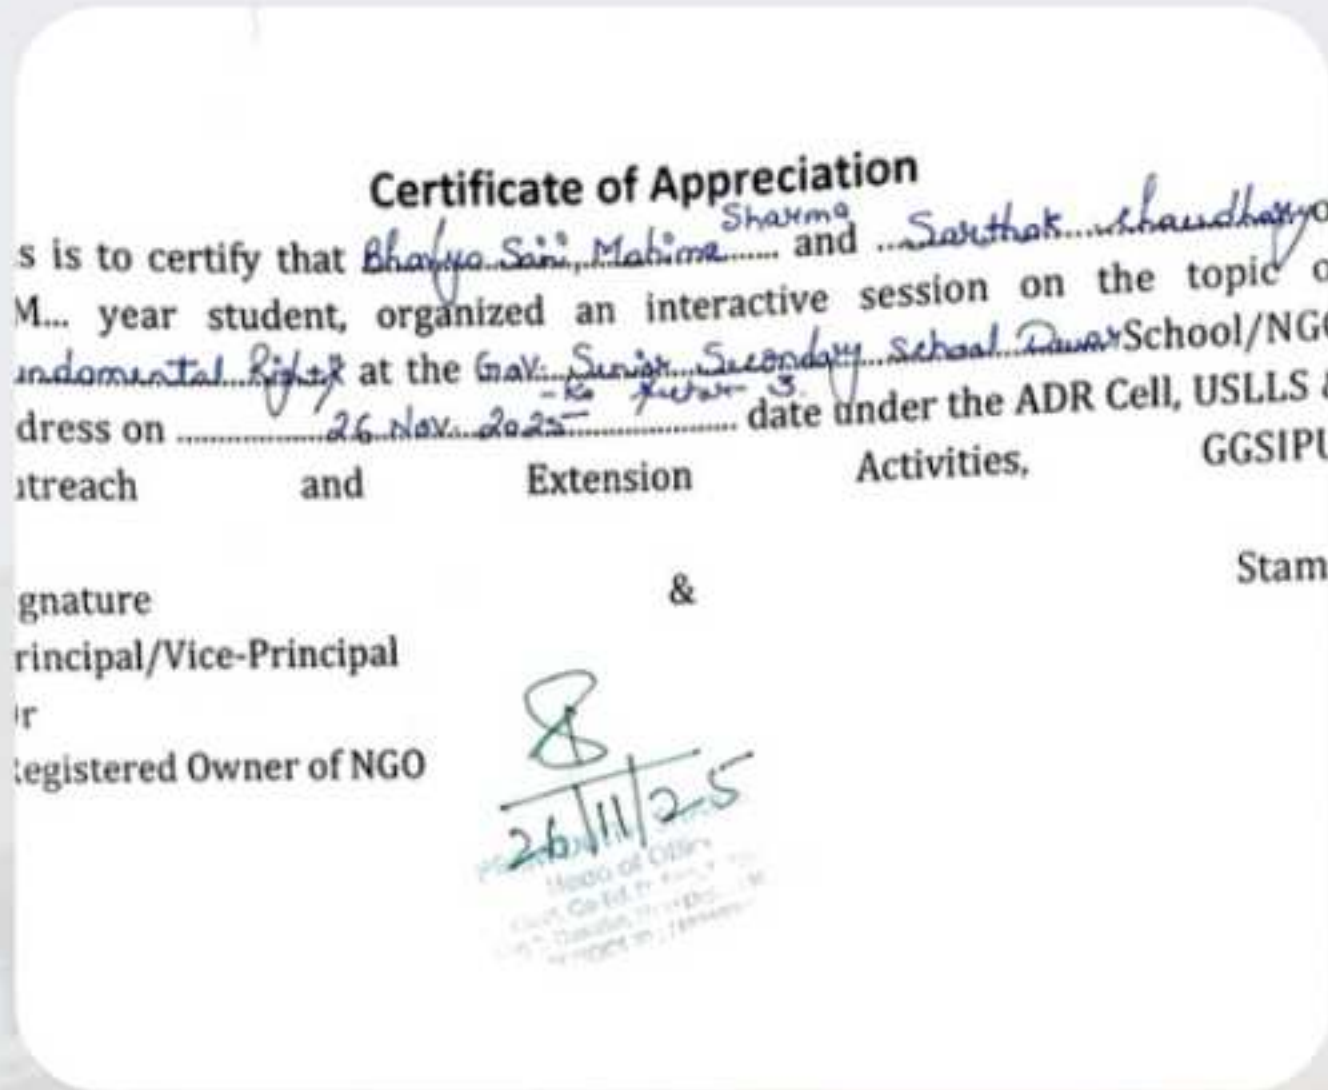 Certificate of Appreciation
Sharma
s is to certify that Bhavya Saini, Mahima....... and ...Sarthak...Chaudhary o
M... year student, organized an interactive session on the topic o
undamental Right at the Gov. Senior Secondary School School/NGO
dress on ..................26 Nov. 2025.................... date under the ADR Cell, USLLS &
utreach and Extension Activities, GGSIPU
gnature & Stam
rincipal/Vice-Principal
r
egistered Owner of NGO
26/11/25
Head of